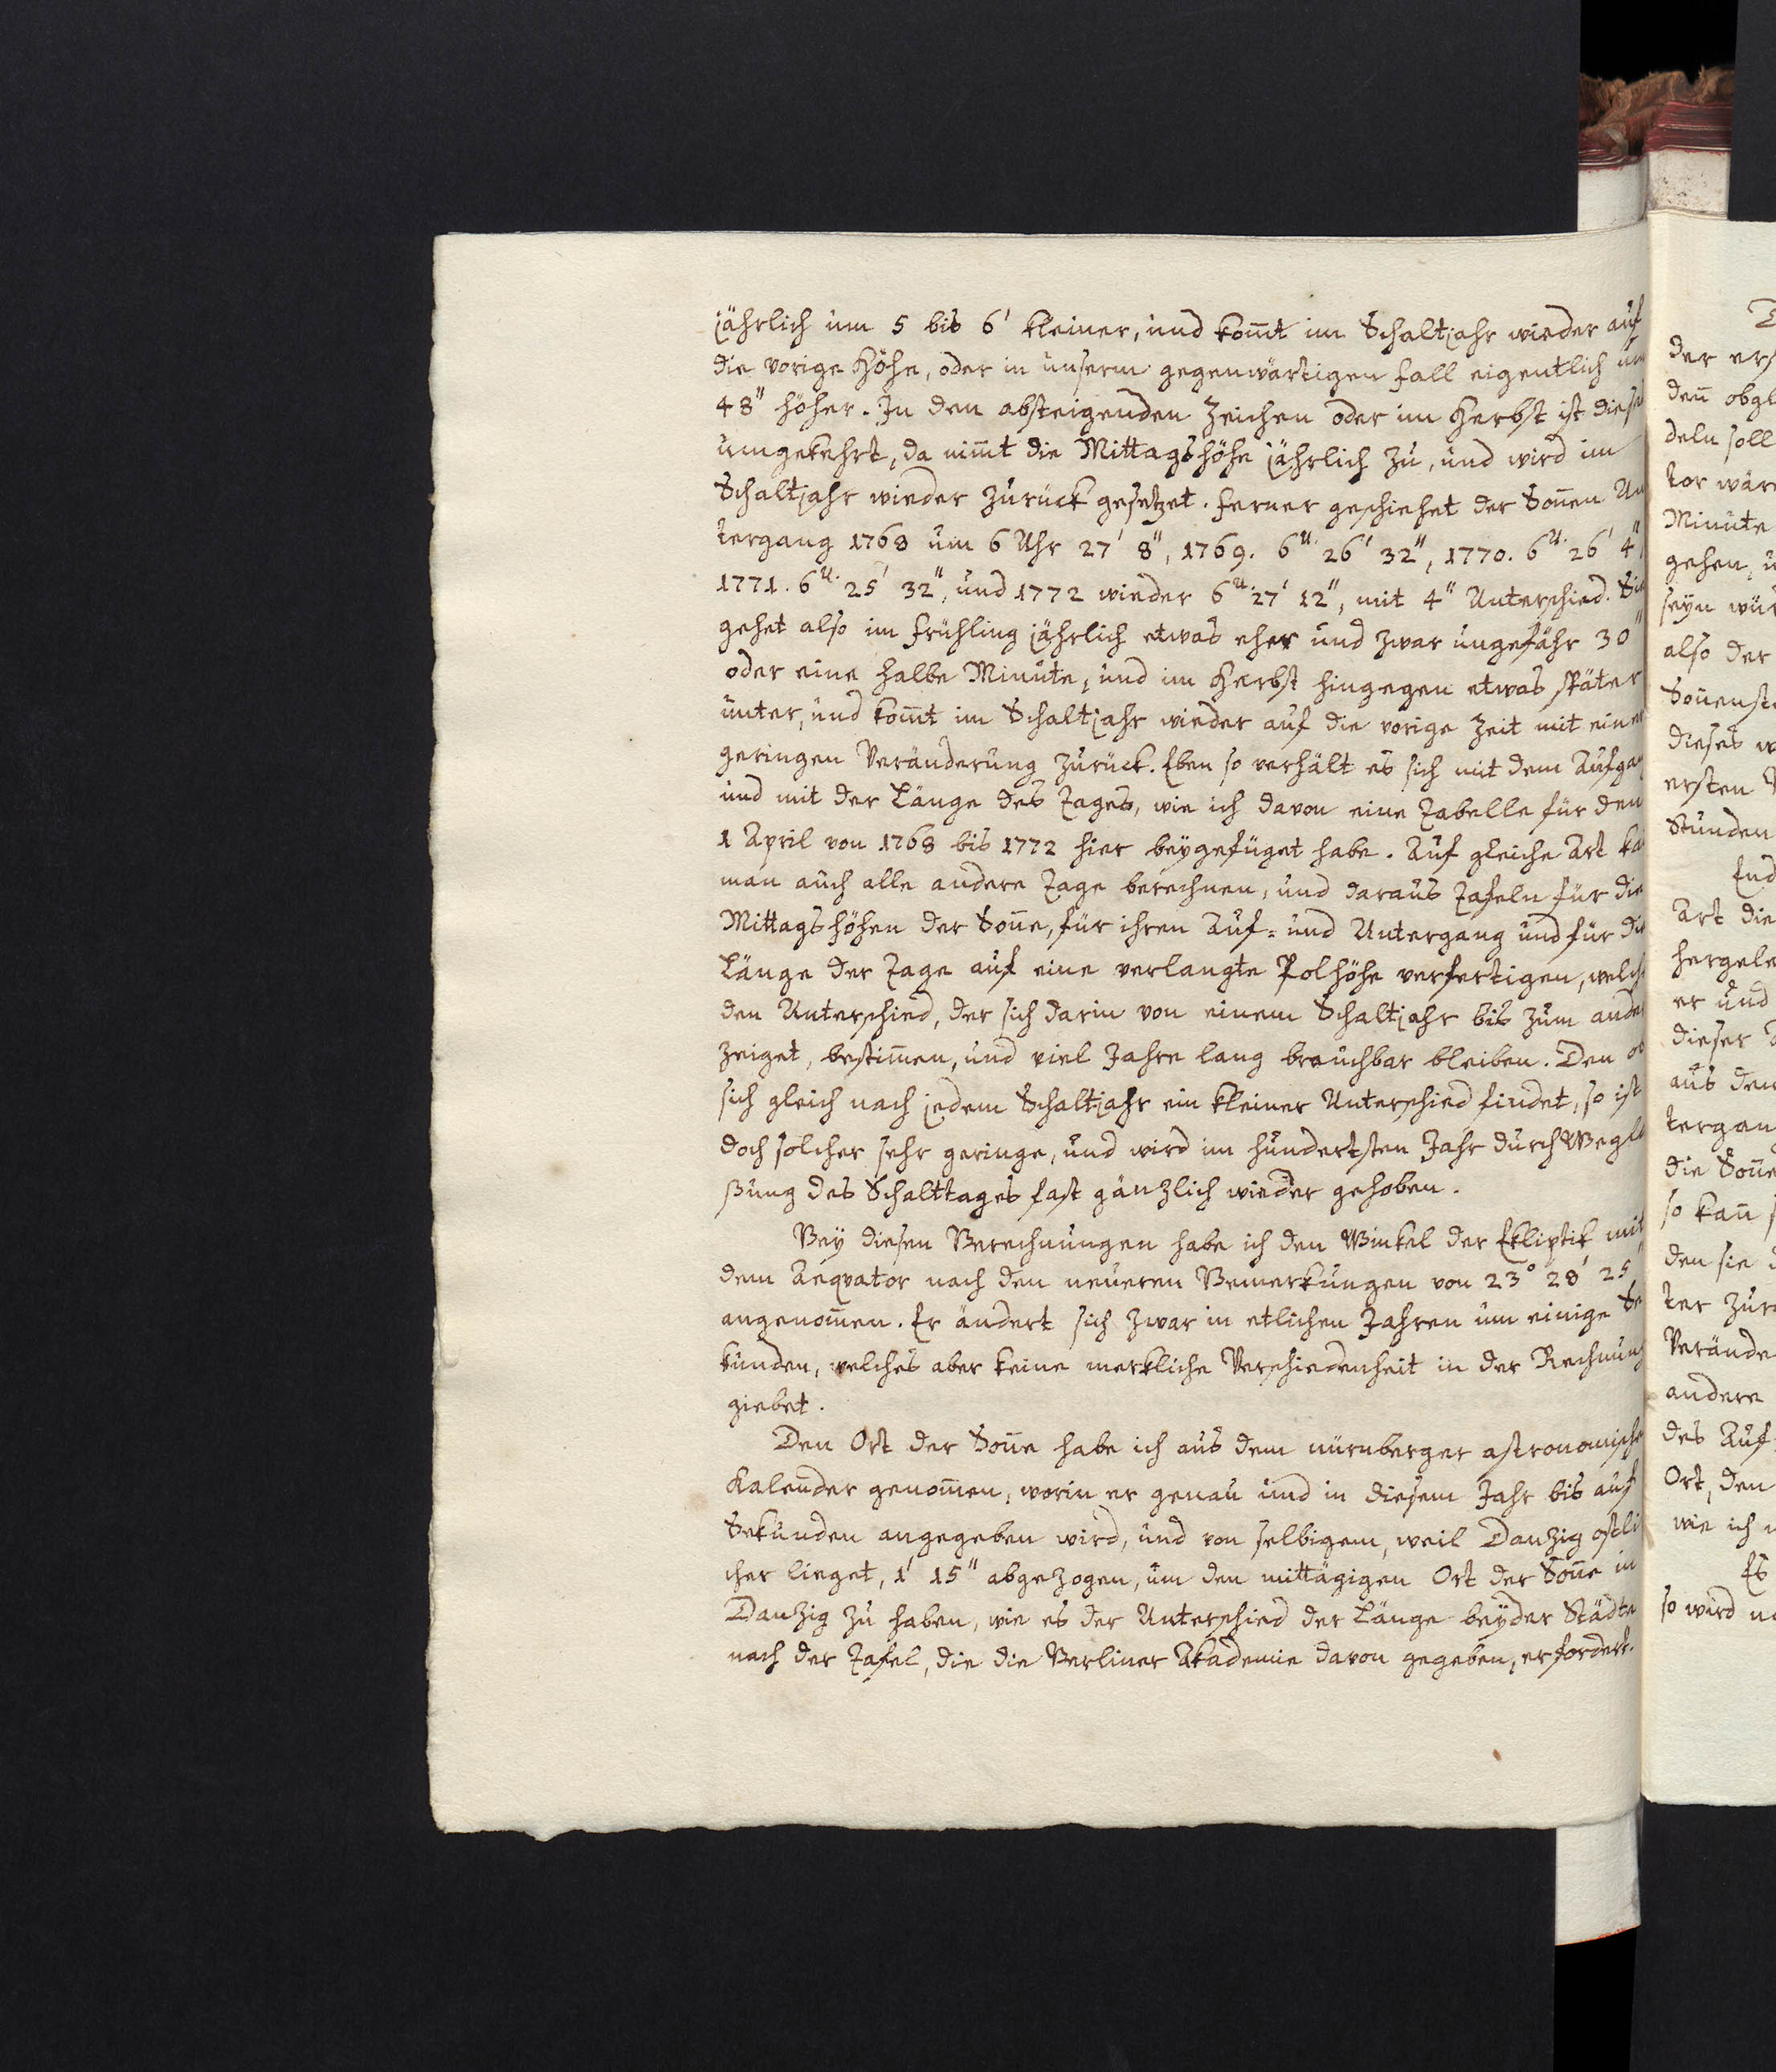 jährlich um 5 bis 6' kleiner, und kom̄t im Schaltjahr wieder auf
die vorige Höhe, oder in unserm gegenwärtigen Fall eigentlich um
48" höher. In den absteigenden Zeichen oder im Herbst ist dieses
umgekehrt, da nim̄t die Mittagshöhe jährlich zu, und wird im
Schaltjahr wieder zurück gesetzet. Ferner geschiehet der Son̄en Un
tergang 1768 um 6 Uhr 27' 8", 1769. 6U. 26' 32", 1770. 6U. 26' 4"
1771. 6U. 25' 32", und 1772 wieder 6U. 27' 12", mit 4" Unterschied. Sie
gehet also im Frühling jährlich etwas eher und zwar ungefähr 30"
oder eine halbe Minute, und im Herbst hingegen etwas später
unter, und kom̄t im Schaltjahr wieder auf die vorige Zeit mit einer
geringen Veränderung zurück. Eben so verhält es sich mit dem Aufgang
und mit der Länge des Tages, wie ich davon eine Tabelle für den
1 April von 1768 bis 1772 hier beygefüget habe. Auf gleiche Art kan
man auch alle andere Tage berechnen, und daraus Tafeln für die
Mittagshöhen der Son̄e, für ihren Auf= und Untergang und für die
Länge der Tage auf eine verlangte Polhöhe verfertigen, welche
den Unterschied, der sich darin von einem Schaltjahr bis zum ander
zeiget, bestim̄en, und viel Jahre lang brauchbar bleiben. Den ob
sich gleich nach jedem Schaltjahr ein kleiner Unterschied findet, so ist
doch solcher sehr geringe, und wird im hundertsten Jahr durch Wegla
ßung des Schalttages fast gänzlich wieder gehoben.
Bey diesen Berechnungen habe ich den Winkel der Ekliptik mit
dem Aeqvator nach den neueren Bemerkungen von 23° 28' 25"
angenom̄en. Er ändert sich zwar in etlichen Jahren um einige Se
kunden, welches aber keine merkliche Verschiedenheit in der Rechnung
giebet.
Den Ort der Son̄e habe ich aus dem nürnberger astronomische
Kalender genom̄en, worin er genau und in diesem Jahr bis auf
Sekunden angegeben wird, und von selbigem, weil Danzig ostli
cher lieget, 1' 15" abgezogen, um den mittägigen Ort der Son̄e in
Danzig zu haben, wie es der Unterschied der Länge beyder Städte
nach der Tafel, die die Berliner Akademie davon gegeben, erfordert.
der ers
den̄ obgl
deln soll
tor wäre
Minute
gehen, u
seyn wür
also der
Son̄enst
dieses w
ersten
Stunden
End
Art die
hergele
er und
dieser
aus dem
tergan
die Son̄e
so kan̄ s
den sie d
ter zur
Verände
andere
des Auf
Ort, den
wie ich
Es
so wird